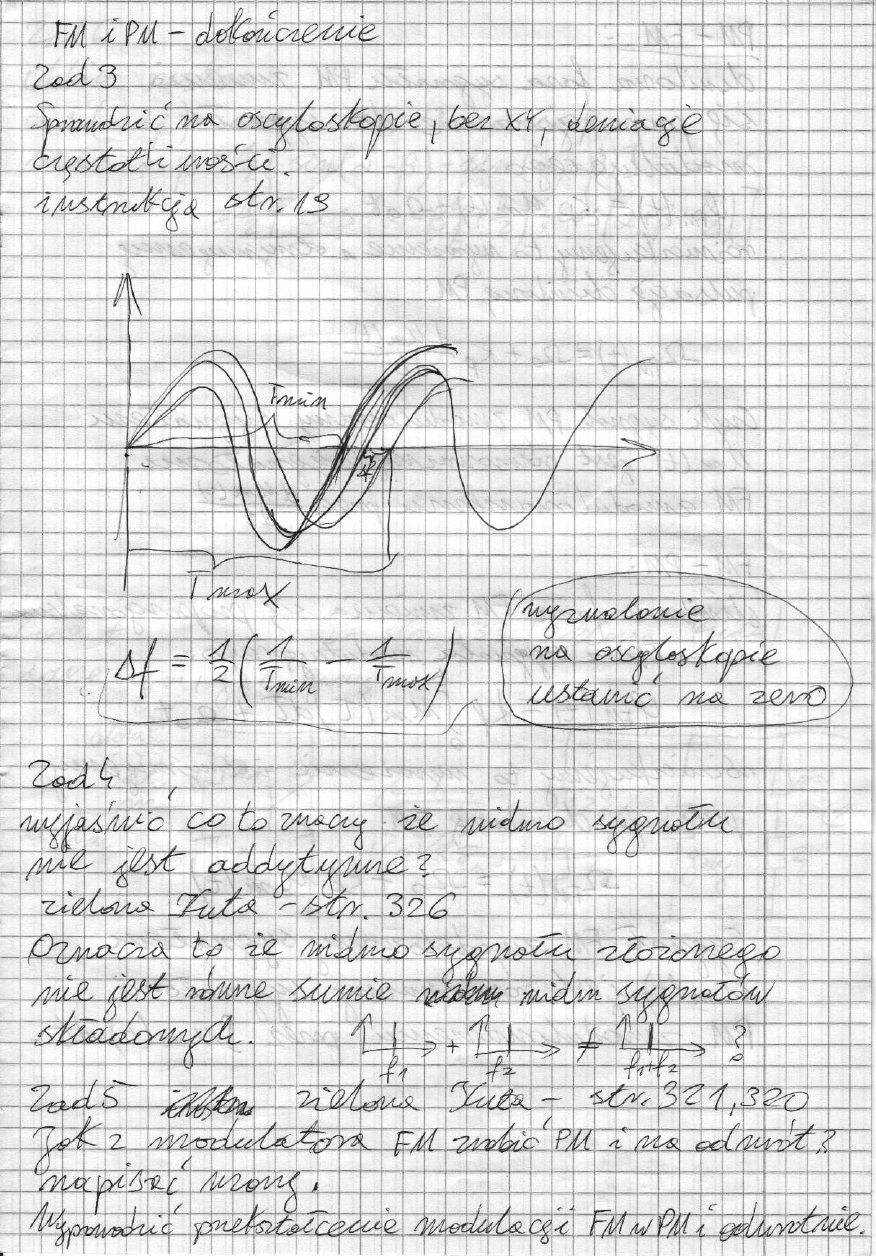 FM i PM – dokończenie
Zad 3
Sprawdzić na oscyloskopie, bez XY, dewiację
częstotliwości.
instrukcja str. 19
Tmin
Tmax
Δf = 1/2 (1/Tmin − 1/Tmax)
wyzwalanie
na oscyloskopie
ustawić na zero
Zad 4
wyjaśnić co to znaczy że widmo sygnału
nie jest addytywne?
zielona Kuta – str. 326
Oznacza to że widmo sygnału złożonego
nie jest równe sumie widm sygnałów
składowych.
f1 + f2 ≠ f1+f2 ?
Zad 5 zielona Kuta – str. 321, 320
Jak z modulatora FM zrobić PM i na odwrót?
napisać wzory.
Wyprowadzić przekształcenie modulacji FM w PM i odwrotnie.